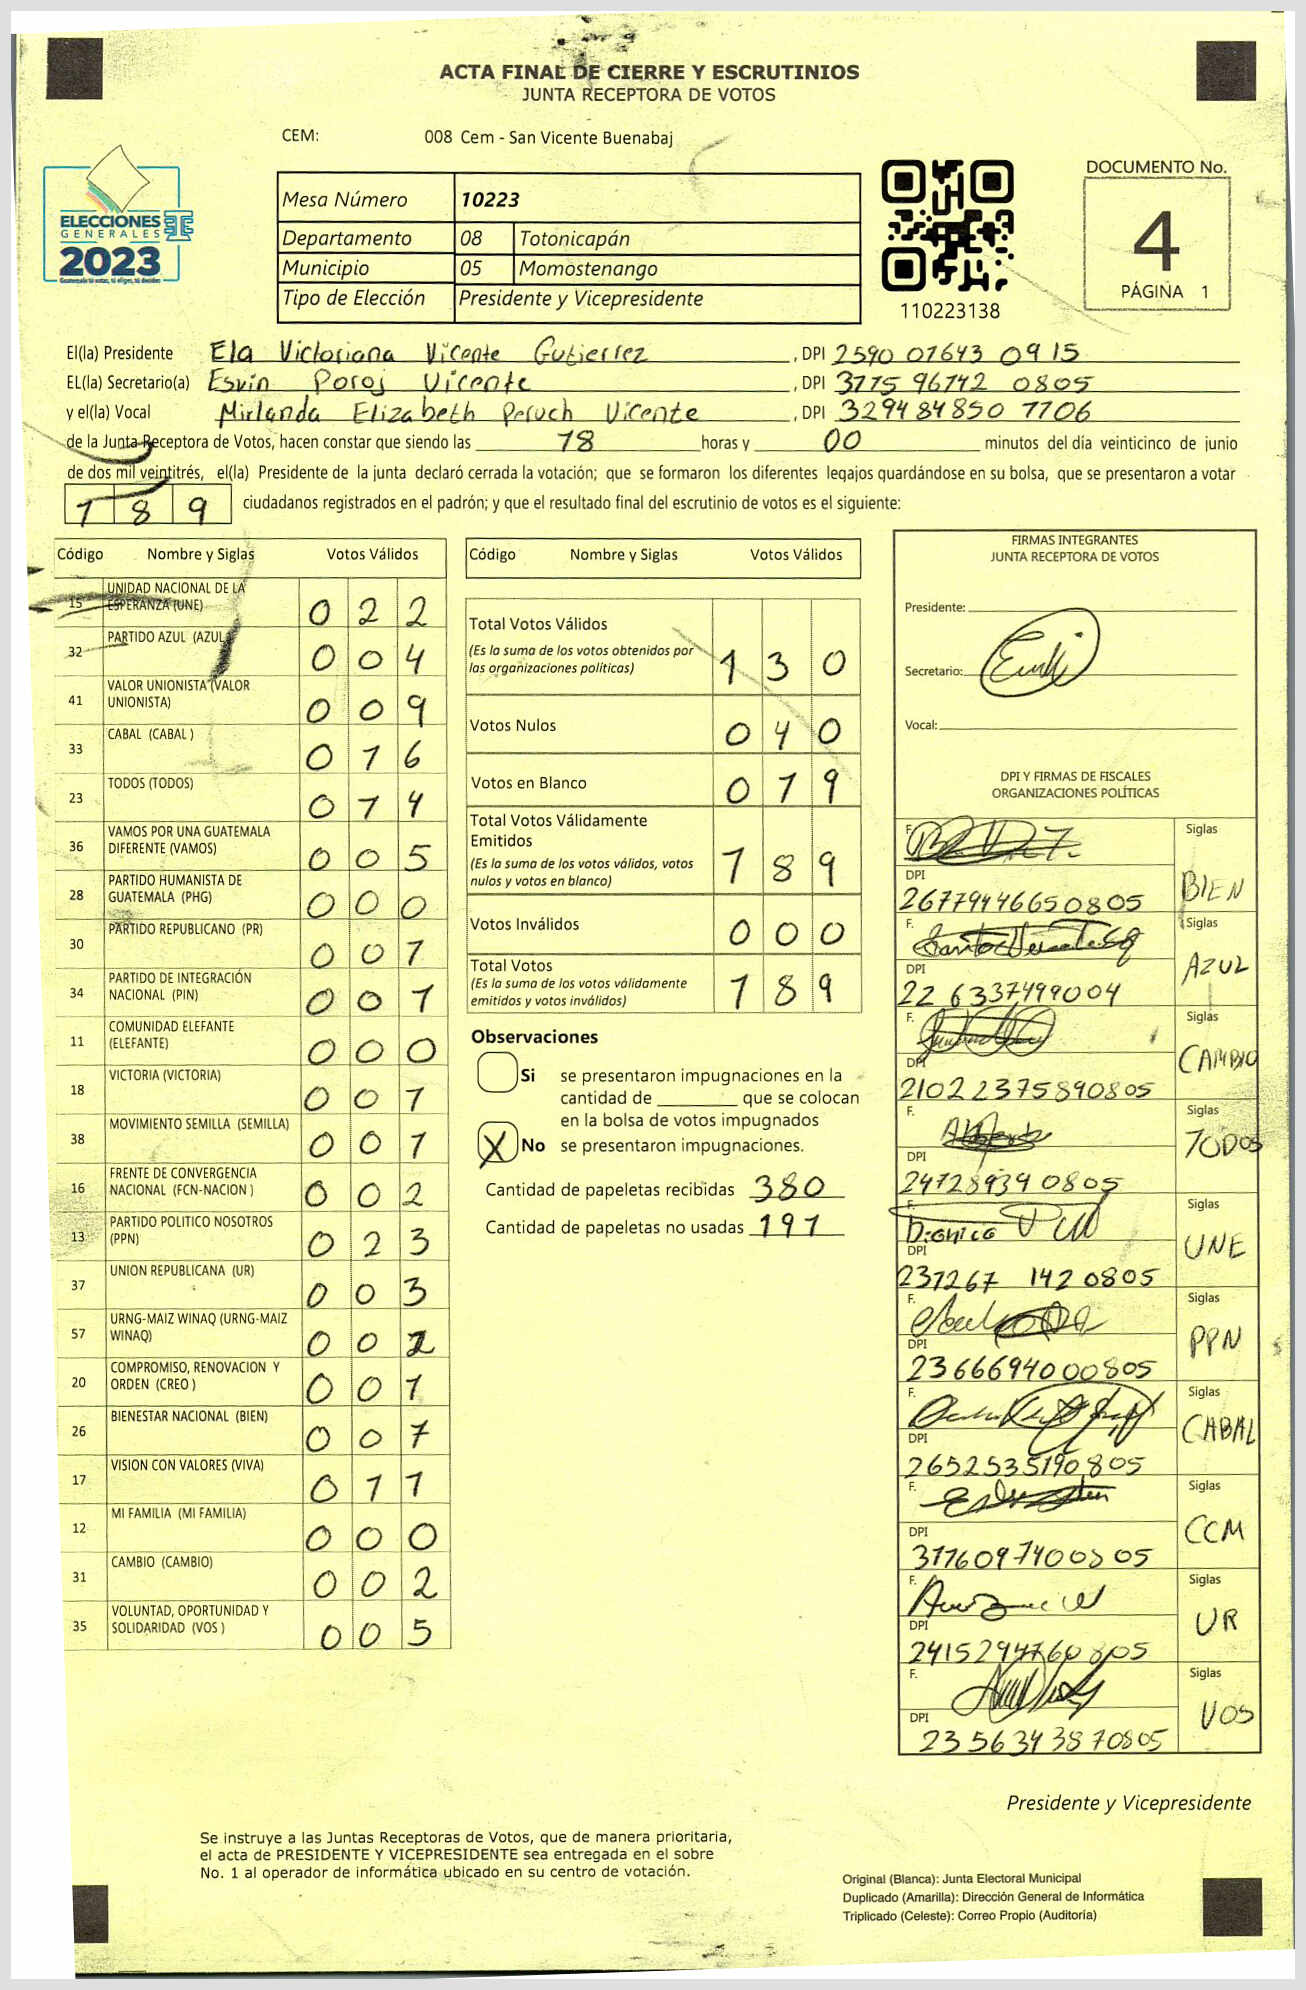 ACTA FINAL DE CIERRE Y ESCRUTINIOS
JUNTA RECEPTORA DE VOTOS
CEM: 008 Cem - San Vicente Buenabaj
ELECCIONES
GENERALES
2023
Guatemala tú votas, tú eliges, tú decides
Mesa Número 10223
Departamento 08 Totonicapán
Municipio 05 Momostenango
Tipo de Elección Presidente y Vicepresidente
110223138
DOCUMENTO No.
4
PÁGINA 1
El(la) Presidente Ela Victoriana Vicente Gutierrez , DPI 2590 01643 0915
EL(la) Secretario(a) Esvin Poroj Vicente , DPI 3115 96142 0805
y el(la) Vocal Mirlanda Elizabeth Peruch Vicente , DPI 3294 84850 1106
de la Junta Receptora de Votos, hacen constar que siendo las 18 horas y 00 minutos del día veinticinco de junio
de dos mil veintitrés, el(la) Presidente de la junta declaró cerrada la votación; que se formaron los diferentes legajos guardándose en su bolsa, que se presentaron a votar
189 ciudadanos registrados en el padrón; y que el resultado final del escrutinio de votos es el siguiente:
Código Nombre y Siglas Votos Válidos
15 UNIDAD NACIONAL DE LA ESPERANZA (UNE) 022
32 PARTIDO AZUL (AZUL) 004
41 VALOR UNIONISTA (VALOR UNIONISTA) 009
33 CABAL (CABAL ) 016
23 TODOS (TODOS) 014
36 VAMOS POR UNA GUATEMALA DIFERENTE (VAMOS) 005
28 PARTIDO HUMANISTA DE GUATEMALA (PHG) 000
30 PARTIDO REPUBLICANO (PR) 001
34 PARTIDO DE INTEGRACIÓN NACIONAL (PIN) 001
11 COMUNIDAD ELEFANTE (ELEFANTE) 000
18 VICTORIA (VICTORIA) 001
38 MOVIMIENTO SEMILLA (SEMILLA) 001
16 FRENTE DE CONVERGENCIA NACIONAL (FCN-NACION ) 002
13 PARTIDO POLITICO NOSOTROS (PPN) 023
37 UNION REPUBLICANA (UR) 003
57 URNG-MAIZ WINAQ (URNG-MAIZ WINAQ) 002
20 COMPROMISO, RENOVACION Y ORDEN (CREO ) 001
26 BIENESTAR NACIONAL (BIEN) 007
17 VISION CON VALORES (VIVA) 011
12 MI FAMILIA (MI FAMILIA) 000
31 CAMBIO (CAMBIO) 002
35 VOLUNTAD, OPORTUNIDAD Y SOLIDARIDAD (VOS ) 005
Código Nombre y Siglas Votos Válidos
Total Votos Válidos
(Es la suma de los votos obtenidos por las organizaciones políticas) 130
Votos Nulos 040
Votos en Blanco 019
Total Votos Válidamente Emitidos
(Es la suma de los votos válidos, votos nulos y votos en blanco) 189
Votos Inválidos 000
Total Votos
(Es la suma de los votos válidamente emitidos y votos inválidos) 189
Observaciones
Si se presentaron impugnaciones en la
cantidad de ________ que se colocan
en la bolsa de votos impugnados
X No se presentaron impugnaciones.
Cantidad de papeletas recibidas 380
Cantidad de papeletas no usadas 191
FIRMAS INTEGRANTES
JUNTA RECEPTORA DE VOTOS
Presidente:
Secretario:
Vocal:
DPI Y FIRMAS DE FISCALES
ORGANIZACIONES POLÍTICAS
F. Siglas
DPI BIEN
2677944660805
F. Siglas
DPI AZUL
22 6337499004
F. Siglas
DPI CAMBIO
21022375890805
F. Siglas
DPI TODOS
0805
F. Siglas
DPI UNE
237267 1420805
F. Siglas
DPI PPN
2366694000805
F. Siglas
DPI CABAL
2652535190805
F. Siglas
DPI CCM
F. Siglas
DPI UR
2415294760805
F. Siglas
DPI VOS
2356343870805
Presidente y Vicepresidente
Se instruye a las Juntas Receptoras de Votos, que de manera prioritaria,
el acta de PRESIDENTE Y VICEPRESIDENTE sea entregada en el sobre
No. 1 al operador de informática ubicado en su centro de votación.
Original (Blanca): Junta Electoral Municipal
Duplicado (Amarilla): Dirección General de Informática
Triplicado (Celeste): Correo Propio (Auditoría)